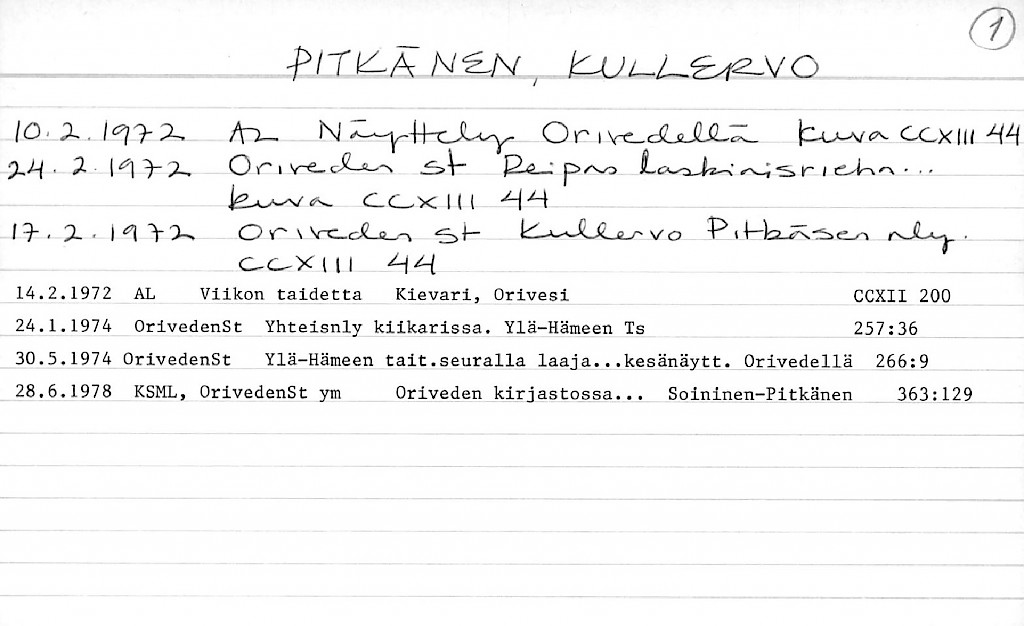 1
PITKÄNEN, KULLERVO
10.2.1972 AL Näyttely Orivedellä kuva CCXIII 44
24.2.1972 Oriveden st Reipas laskiaisrieha...
kuva CCXIII 44
17.2.1972 Oriveden st Kullervo Pitkäsen nly.
CCXIII 44
14.2.1972 AL Viikon taidetta Kievari, Orivesi CCXII 200
24.1.1974 OrivedenSt Yhteisnly kiikarissa. Ylä-Hämeen Ts 257:36
30.5.1974 OrivedenSt Ylä-Hämeen tait.seuralla laaja...kesänäytt. Orivedellä 266:9
28.6.1978 KSML, OrivedenSt ym Oriveden kirjastossa... Soininen-Pitkänen 363:129